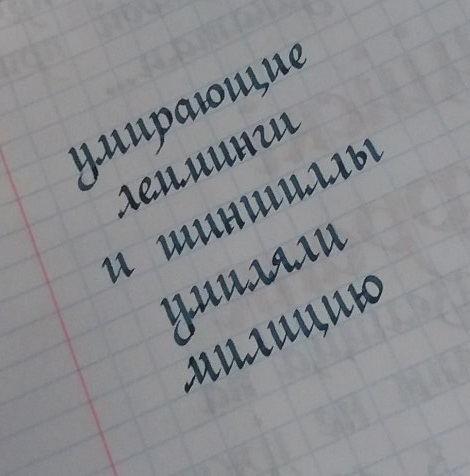 умирающие
лемминги
и шиншиллы
умиляли
милицию